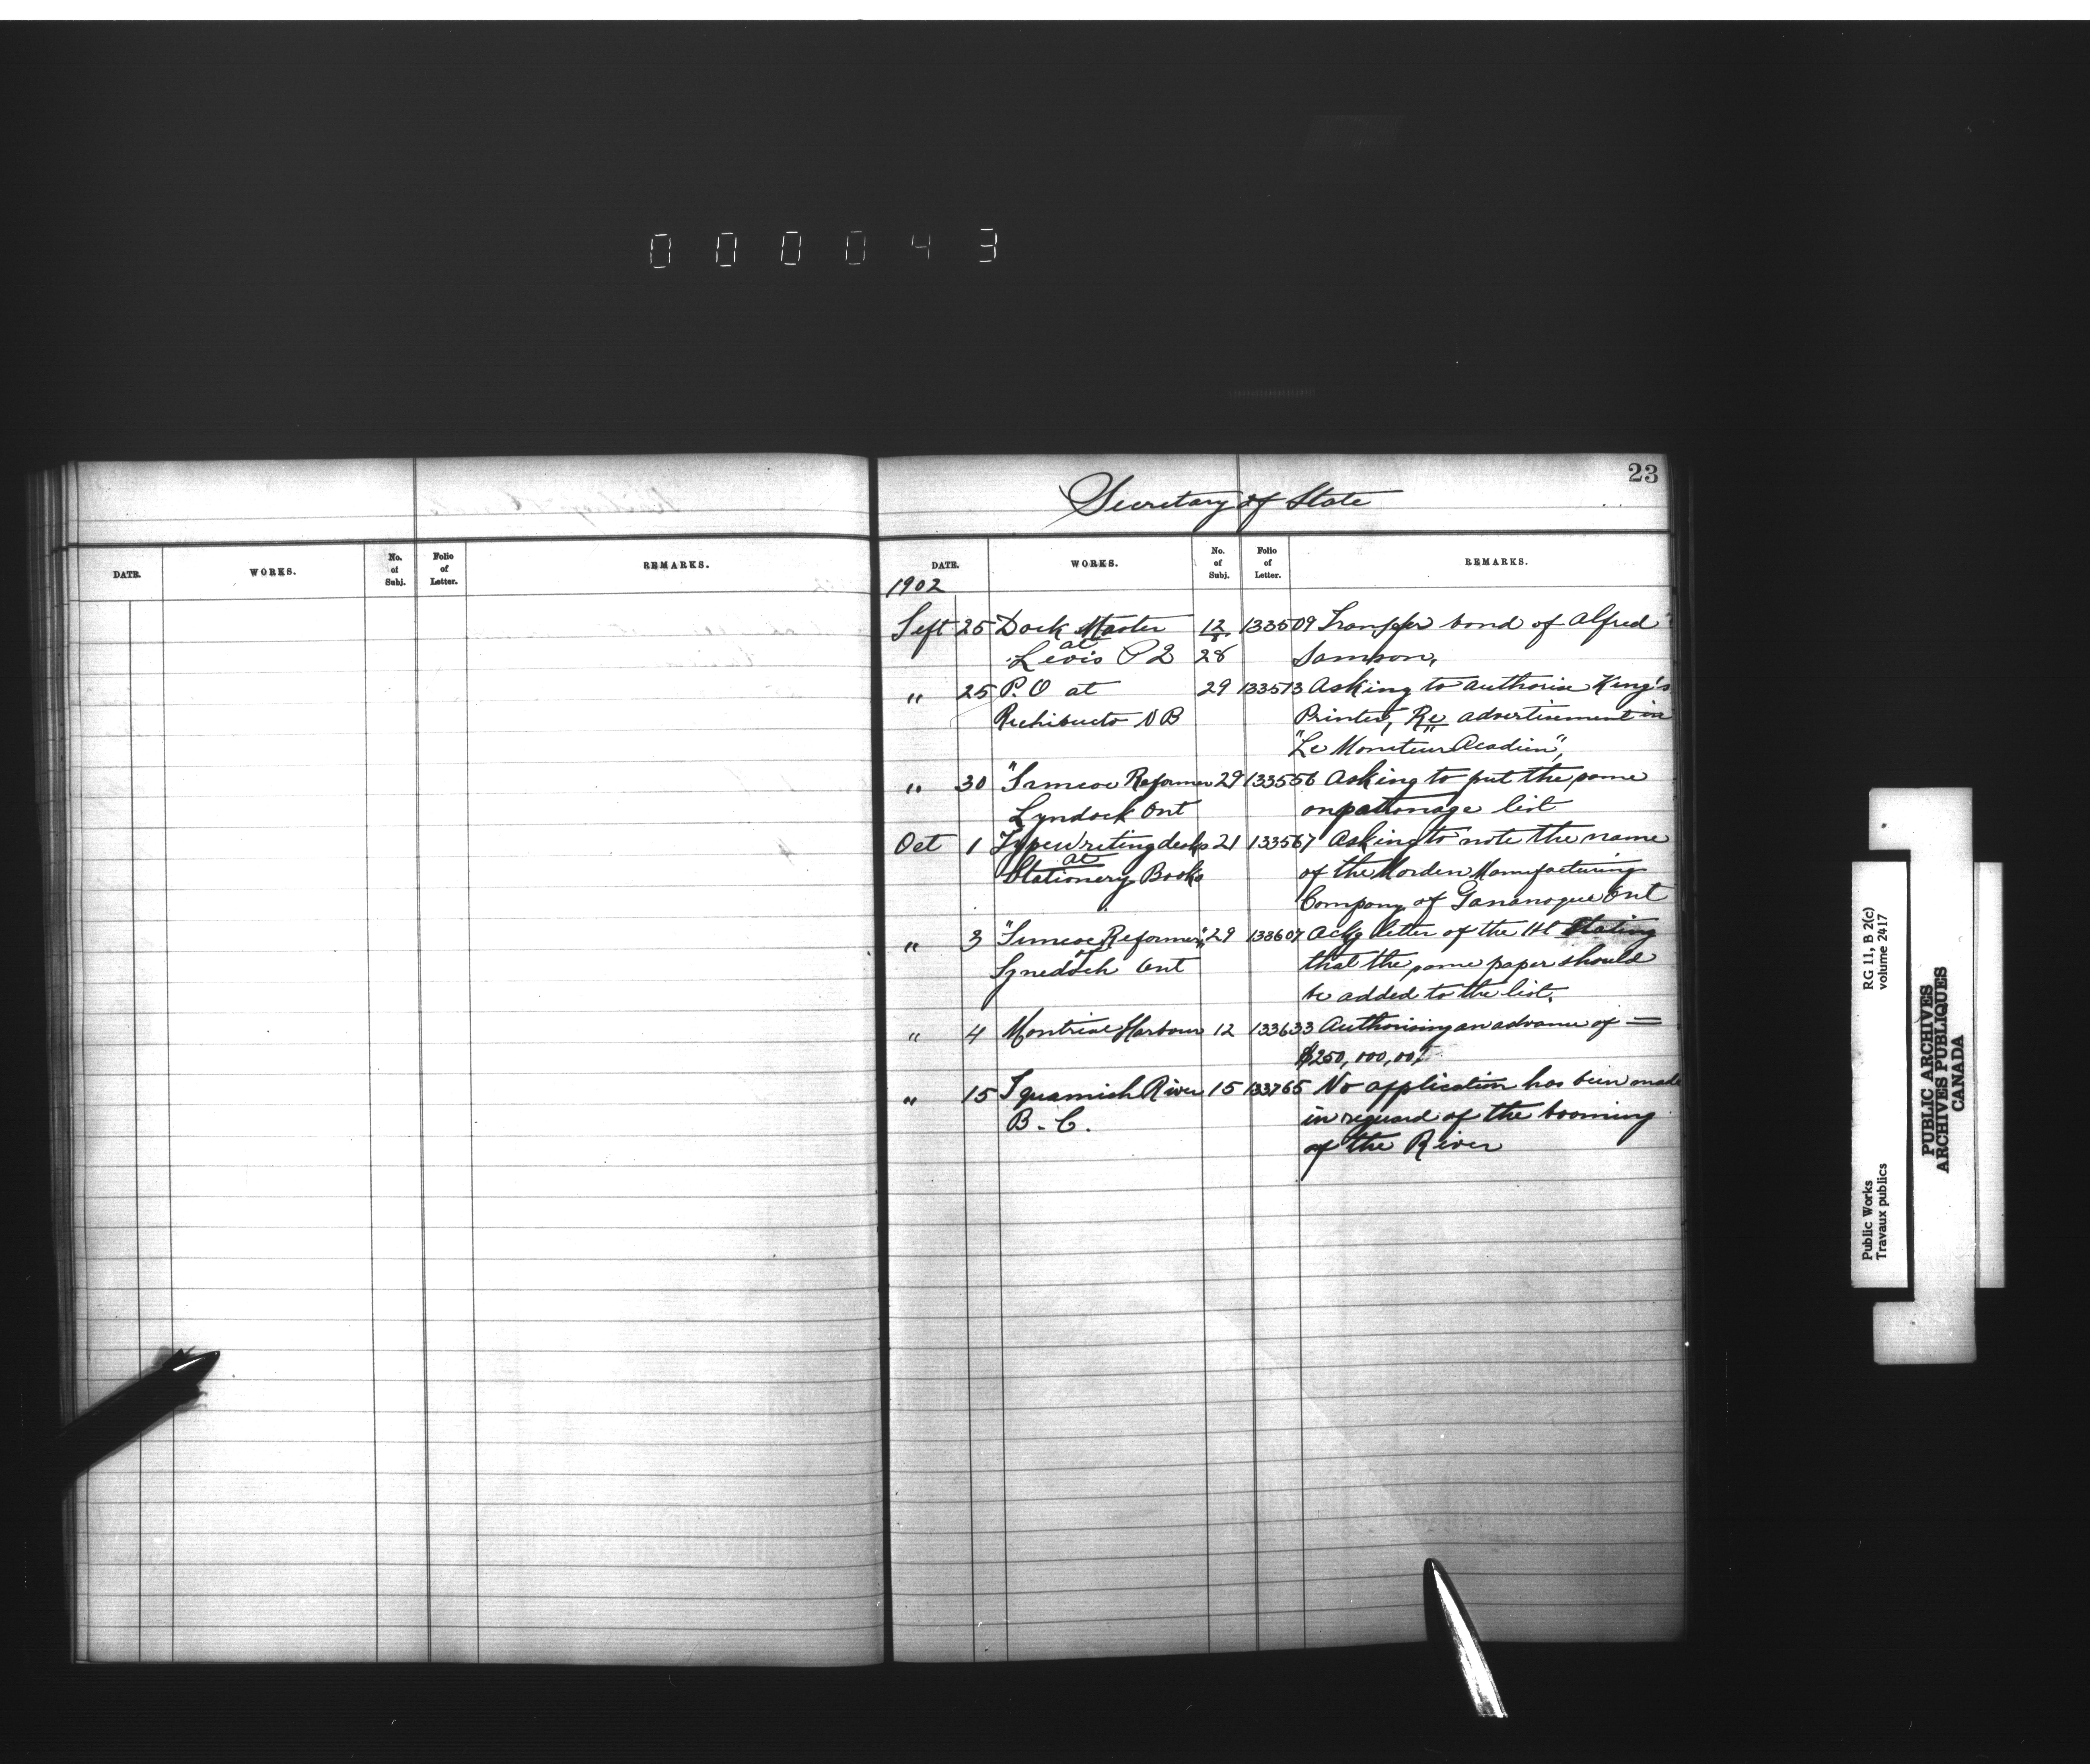 000043
23
Secretary of State
DATE. WORKS. No. of Subj. Folio of Letter. REMARKS.
DATE. WORKS. No. of Subj. Folio of Letter. REMARKS.
1902
Sept 25 Dock Master 12 133509 Transfer bond of Alfred
at
Levis P2 28 Samson,
" 25 P.O at 29 133573 Asking to authorise King's
Richibucto NB Printer, Re advertisement in
"Le Moniteur Acadien",
" 30 "Simcoe Reformer 29 133556 Asking to put the same
Lyndock Ont on patronage list
Oct 1 Typewriting desks 21 133567 Asking to note the name
at
Stationery Books of the Morden Manufacturing
Company of Gananoque Ont
" 3 "Simcoe Reformer," 29 133607 Ackg letter of the 1st Stating
of
Lynedoch Ont that the same paper should
be added to the list.
" 4 Montreal Harbour 12 133633 Authorising an advance of =
$250,000,00
" 15 Squamish River 15 133765 No application has been made
B.C. in reguard of the booming
of the River
RG 11, B 2(c)
volume 2417
Public Works
Travaux publics
PUBLIC ARCHIVES
ARCHIVES PUBLIQUES
CANADA